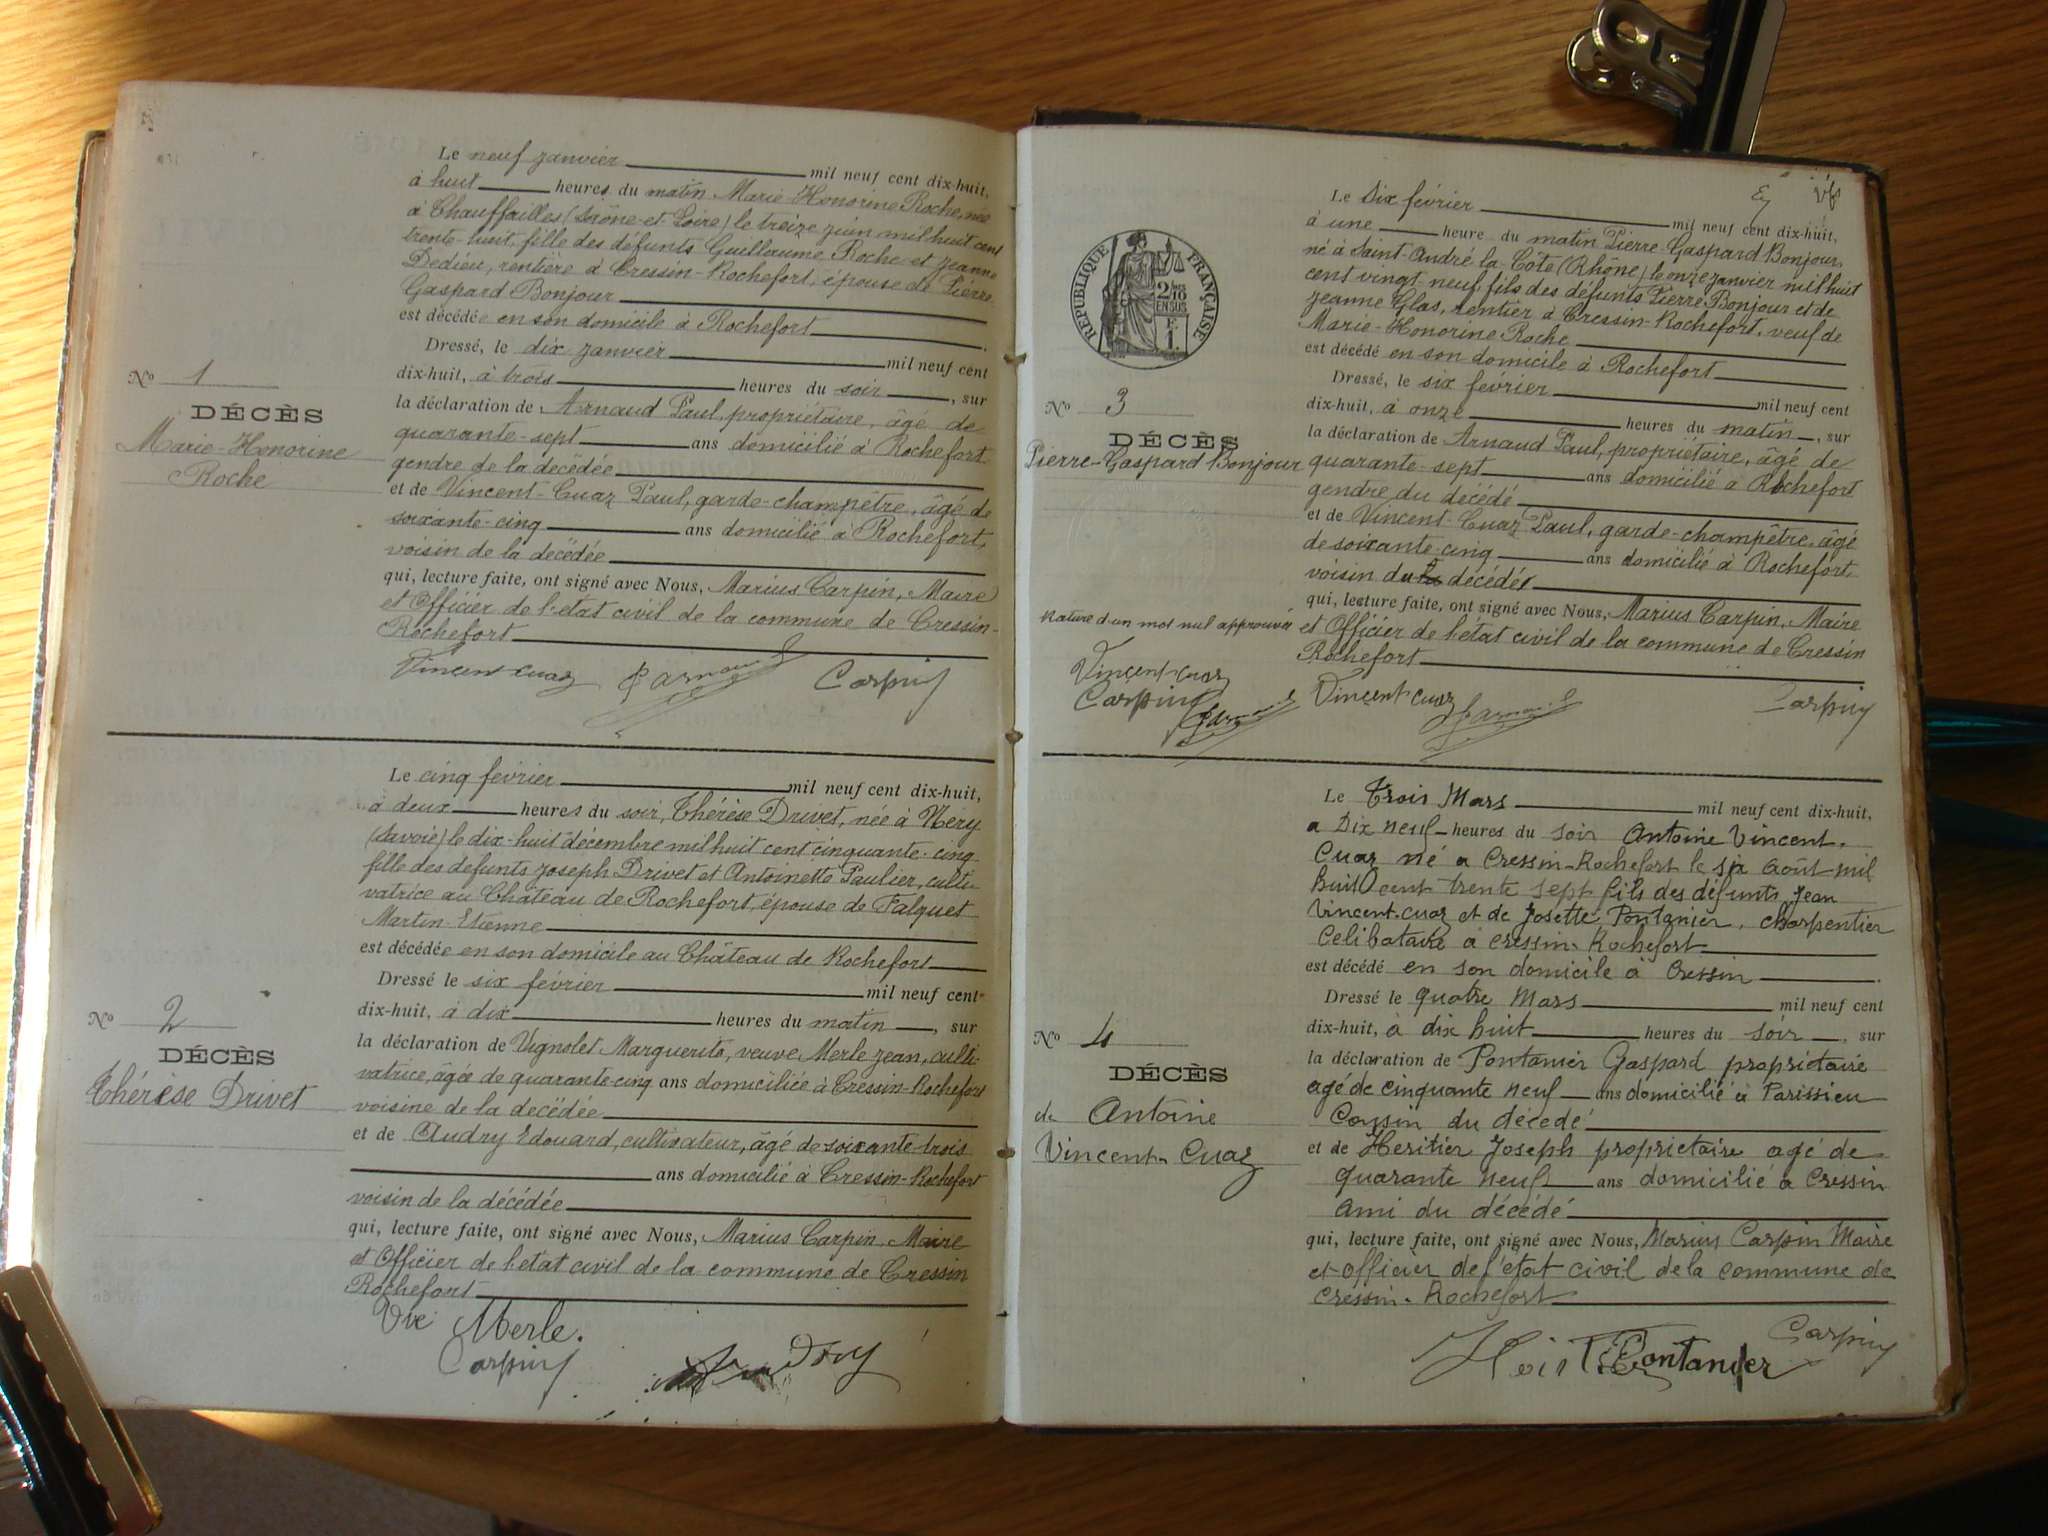 Le neuf janvier mil neuf cent dix-huit,
à huit heures du matin Marie-Honorine Roche, née
à Chauffailles (Saône-et-Loire) le treize juin mil huit cent
trente-huit, fille des défunts Guillaume Roche et Jeanne
Dedieu, rentière à Cressin-Rochefort, épouse de Pierre-
Gaspard Bonjour
est décédée en son domicile à Rochefort
Dressé, le dix janvier mil neuf cent
dix-huit, à trois heures du soir, sur
la déclaration de Arnaud Paul, propriétaire, âgé de
quarante-sept ans domicilié à Rochefort
gendre de la décédée
et de Vincent-Cuaz Paul, garde-champêtre, âgé de
soixante-cinq ans domicilié à Rochefort,
voisin de la décédée
qui, lecture faite, ont signé avec Nous, Marius Carpin, Maire
et Officier de l'état civil de la commune de Cressin-
Rochefort
Vincent-Cuaz P Arnaud Carpin
No 1
DÉCÈS
Marie-Honorine
Roche
Le cinq février mil neuf cent dix-huit,
à deux heures du soir, Thérèse Drivet, née à Méry
(Savoie) le dix-huit décembre mil huit cent cinquante-cinq
fille des défunts Joseph Drivet et Antoinette Paulier, culti-
vatrice au Château de Rochefort, épouse de Falquet
Martin-Etienne
est décédée en son domicile au Château de Rochefort
Dressé le six février mil neuf cent
dix-huit, à dix heures du matin, sur
la déclaration de Vignolet Marguerite, veuve Merle Jean, culti-
vatrice, âgée de quarante-cinq ans domiciliée à Cressin-Rochefort
voisine de la décédée
et de Audry Edouard, cultivateur, âgé de soixante-trois
ans domicilié à Cressin-Rochefort
voisin de la décédée
qui, lecture faite, ont signé avec Nous, Marius Carpin, Maire
et Officier de l'état civil de la commune de Cressin
Rochefort
Vve Merle.
Carpin Audry
No 2
DÉCÈS
Thérèse Drivet
RÉPUBLIQUE FRANÇAISE
2/10
EN SUS
F.
1.
Le Six février mil neuf cent dix-huit,
à une heure du matin Pierre-Gaspard Bonjour,
né à Saint-André-la-Côte (Rhône) le onze janvier mil huit
cent vingt-neuf, fils des défunts Pierre Bonjour et de
Jeanne Glas, rentier à Cressin-Rochefort, veuf de
Marie-Honorine Roche
est décédé en son domicile à Rochefort
Dressé, le six février mil neuf cent
dix-huit, à onze heures du matin, sur
la déclaration de Arnaud Paul, propriétaire, âgé de
quarante-sept ans domicilié à Rochefort
gendre du décédé
et de Vincent-Cuaz Paul, garde-champêtre, âgé
de soixante-cinq ans domicilié à Rochefort,
voisin du la décédé
qui, lecture faite, ont signé avec Nous, Marius Carpin, Maire
et Officier de l'état civil de la commune de Cressin
Rochefort
Vincent-Cuaz P Arnaud Carpin
No 3
DÉCÈS
Pierre-Gaspard Bonjour
Rature d'un mot nul approuvée
Vincent-Cuaz
Carpin P Arnaud
Le Trois Mars mil neuf cent dix-huit,
a Dix neuf heures du soir Antoine Vincent-
Cuaz né a Cressin-Rochefort le six Août mil
huit cent trente sept fils des défunts Jean
Vincent-Cuaz et de Josette Pontanier, Charpentier
Celibataire a Cressin-Rochefort
est décédé en son domicile à Cressin
Dressé le quatre Mars mil neuf cent
dix-huit, à dix huit heures du soir, sur
la déclaration de Pontanier Gaspard proprietaire
agé de cinquante neuf ans domicilié à Parissieu
Cousin du décedé
et de Heritier Joseph proprietaire agé de
quarante neuf ans domicilié a Cressin
Ami du décédé
qui, lecture faite, ont signé avec Nous, Marius Carpin Maire
et officier de l'etat civil de la commune de
Cressin-Rochefort
Pontanier Carpin
No 4
DÉCÈS
de Antoine
Vincent-Cuaz